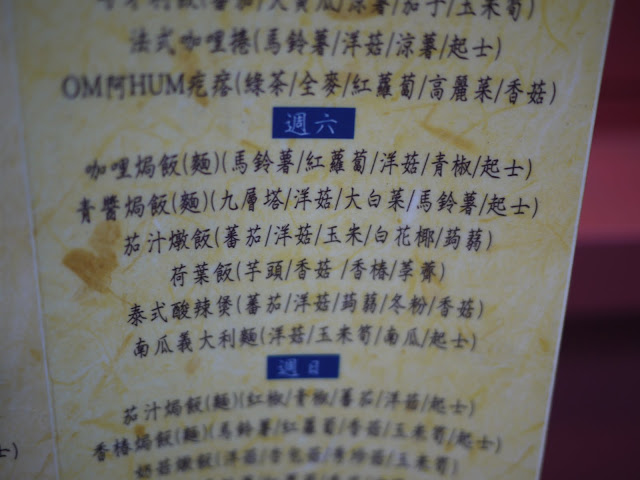 義大利飯(蕃茄/大黃瓜/涼薯/茄子/玉米筍)
法式咖哩捲(馬鈴薯/洋菇/涼薯/起士)
OM阿HUM疙瘩(綠茶/全麥/紅蘿蔔/高麗菜/香菇)
週六
咖哩焗飯(麵)(馬鈴薯/紅蘿蔔/洋菇/青椒/起士)
青醬焗飯(麵)(九層塔/洋菇/大白菜/馬鈴薯/起士)
茄汁燉飯(蕃茄/洋菇/玉米/白花椰/蒟蒻)
荷葉飯(芋頭/香菇/香椿/荸薺)
泰式酸辣煲(蕃茄/洋菇/蒟蒻/冬粉/香菇)
南瓜義大利麵(洋菇/玉米筍/南瓜/起士)
週日
茄汁焗飯(麵)(紅椒/青椒/蕃茄/洋菇/起士)
香椿焗飯(麵)(馬鈴薯/紅蘿蔔/香菇/玉米筍/起士)
奶菇燉飯(洋菇/杏包菇/秀珍菇/玉米筍/起士)
士)